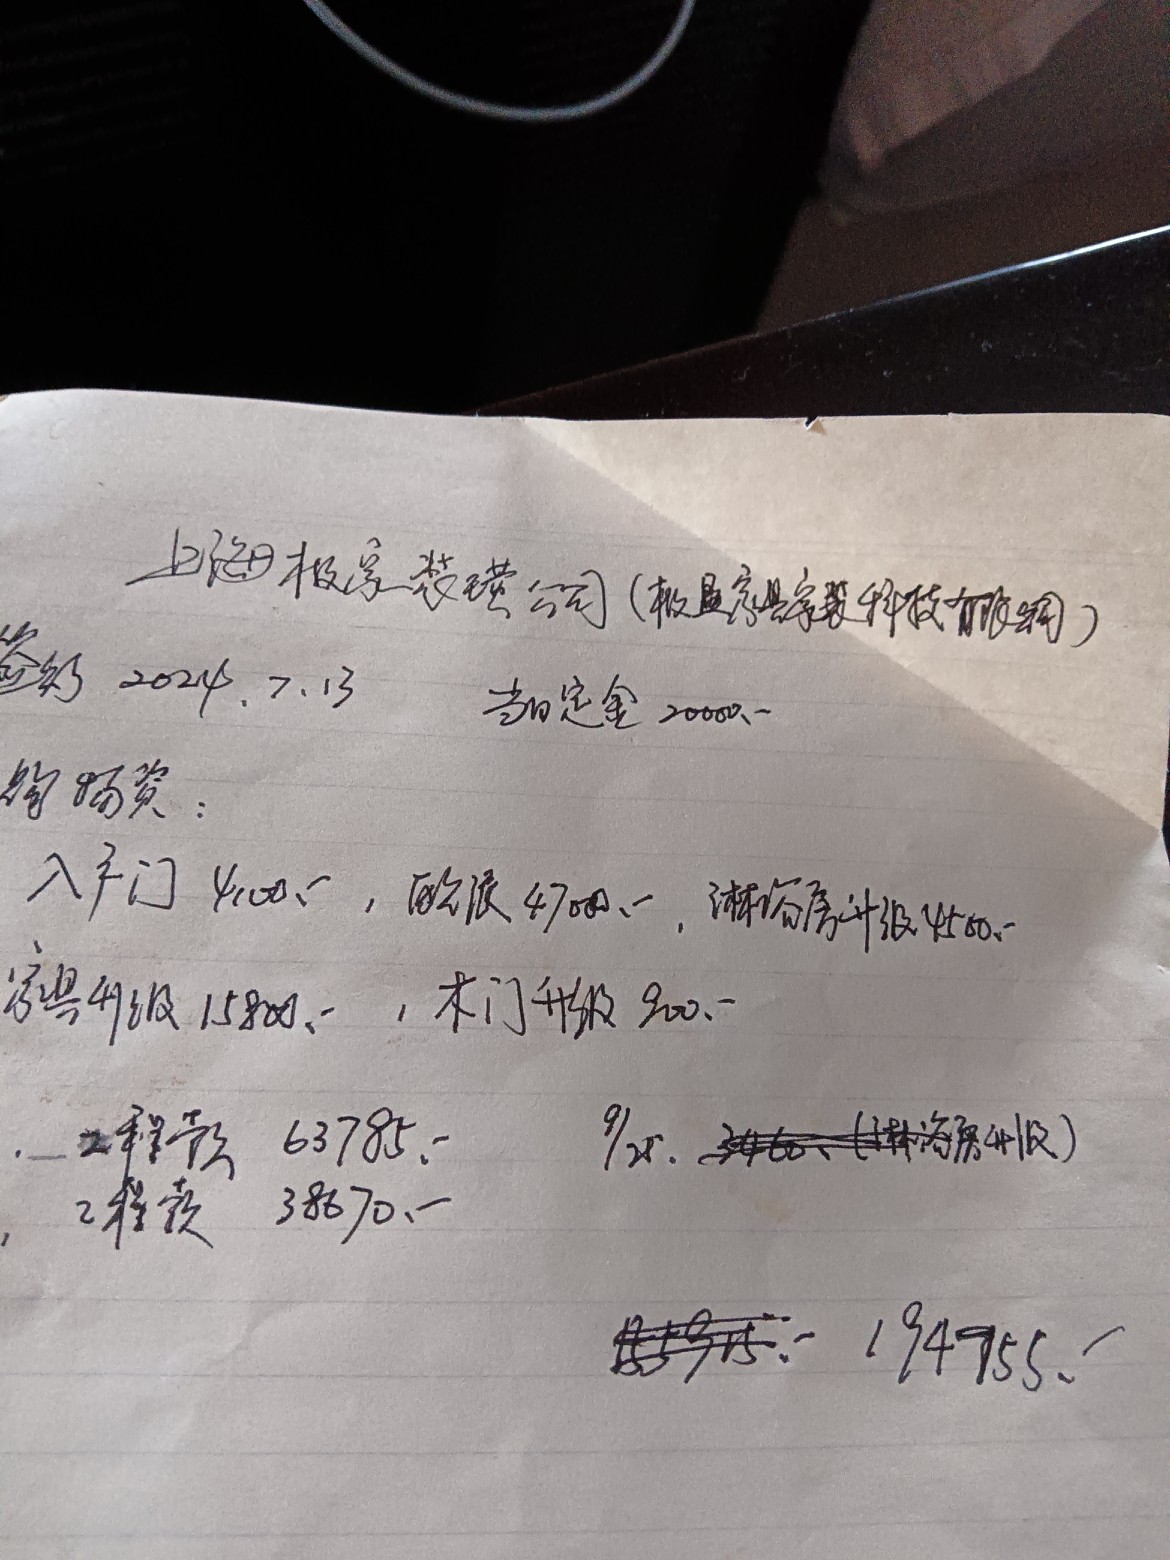 上海极家装璜公司(极益家具家装科技有限公司)
签约 2024.7.13 当日定金 20000.-
购物资:
入户门 4100.-, 欧派 4700.-, 淋浴房升级 4500.-
家具升级 15800.-, 木门升级 900.-
工程款 63785.- 9/28. 3460.(淋浴房升级)
工程款 38670.-
155915.- 194755.-